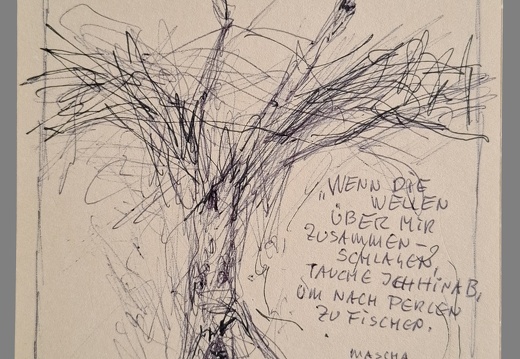 „WENN DIE
WELLEN
ÜBER MIR
ZUSAMMEN-
SCHLAGEN,
TAUCHE ICH HINAB,
UM NACH PERLEN
ZU FISCHEN.
MASCHA